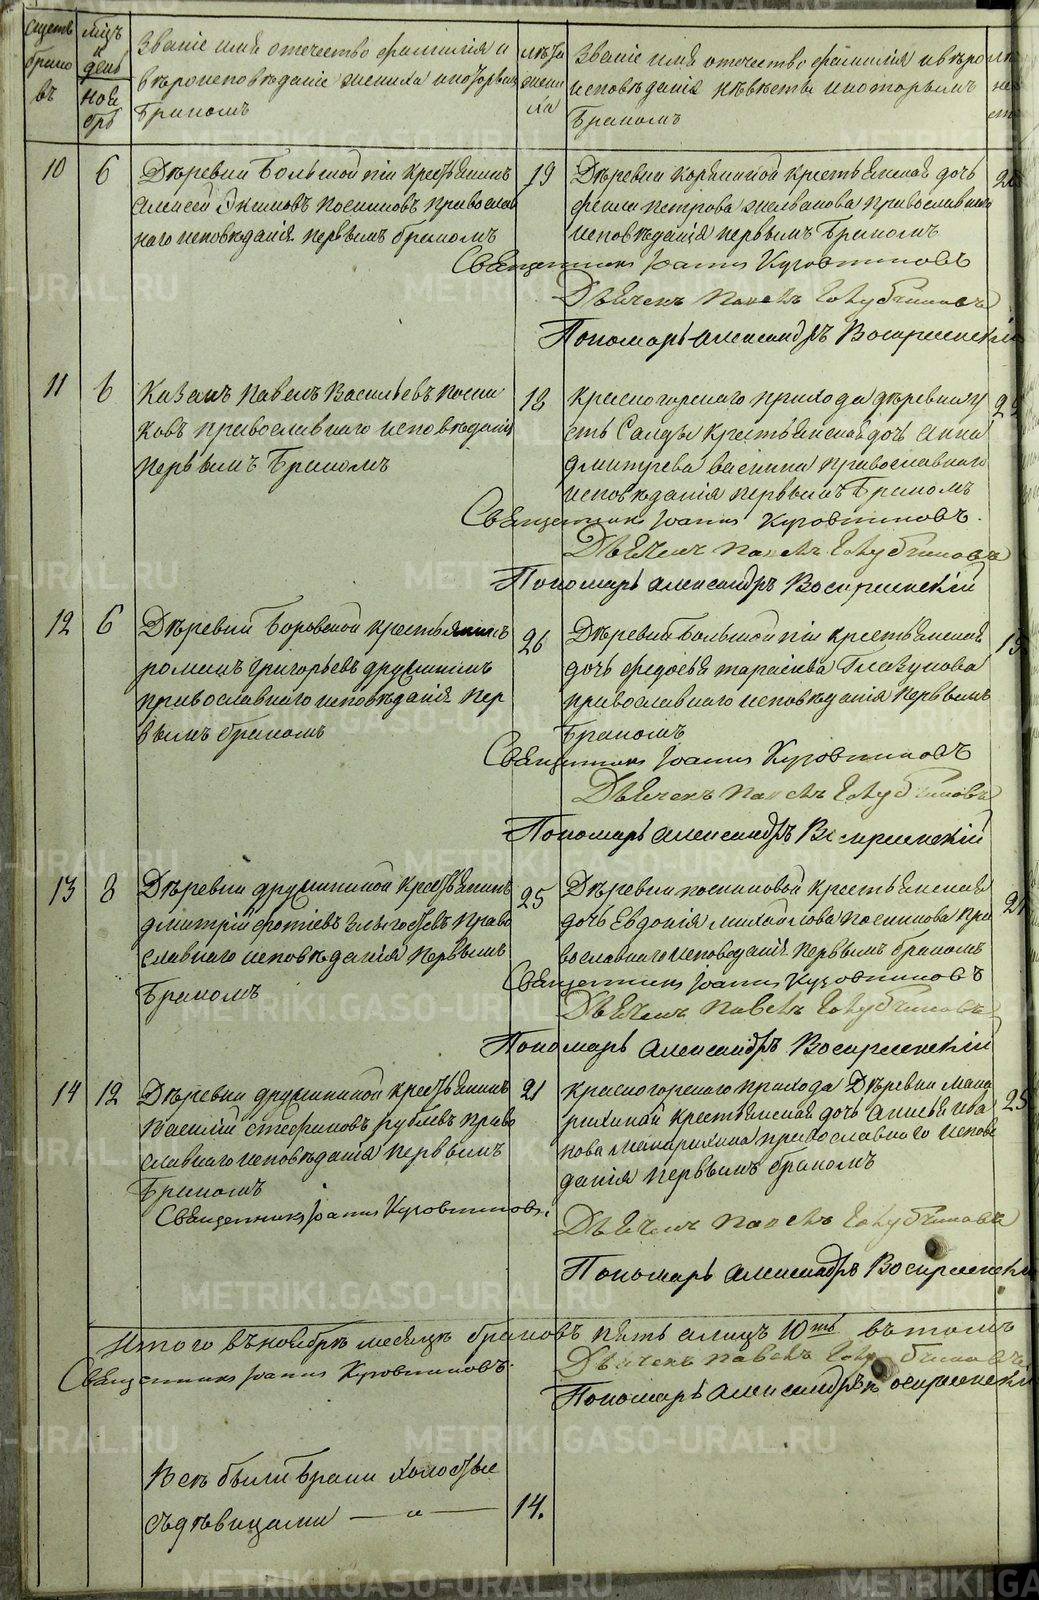 Счетъ
браковъ
мѣсцъ
и
день
Ноябрь
Званіе имя отечество фамилія и
вѣроисповѣданіе жениха и которымъ
бракомъ
лѣта
жениха
Званіе имя отечество фамилія и вѣро
исповѣданія невѣсты и которымъ
бракомъ
10 6
Дѣревни Большой крестьянинъ
Алексей Посниковъ православ
наго исповѣданія первымъ бракомъ
19
Дѣревни крестьянская дочь
Петрова православнаго
исповѣданія первымъ бракомъ
Священникъ Іоаннъ Куровтиковъ
Дьячекъ Павелъ Голубчиковъ
Пономарь Александръ Воскресенскій
11 6
Казакъ Павелъ Васильевъ Посни
ковъ православнаго исповѣданія
первымъ бракомъ
18
Красногорскаго прихода дѣревни у
сть Салды крестьянская дочь Анна
Дмитрева православнаго
исповѣданія первымъ бракомъ
Священникъ Іоаннъ Куровтиковъ
Дьячекъ Павелъ Голубчиковъ
Пономарь Александръ Воскресенскій
12 6
Дѣревни Боровской крестьянинъ
романъ Григорьевъ дружининъ
православнаго исповѣданія пер
вымъ бракомъ
26
Дѣревни Большой крестьянская
дочь федосья тарасова Глазунова
православнаго исповѣданія первымъ
бракомъ
Священникъ Іоаннъ Куровтиковъ
Дьячекъ Павелъ Голубчиковъ
Пономарь Александръ Воскресенскій
13 8
Дѣревни дружининой крестьянинъ
дмитрій фотіевъ право
славнаго исповѣданія первымъ
бракомъ
25
Дѣревни посниковой крестьянская
дочь Евдокія михайлова посникова пра
вославнаго исповеданія первымъ бракомъ
Священникъ Іоаннъ Куровтиковъ
Дьячекъ Павелъ Голубчиковъ
Пономарь Александръ Воскресенскій
14 12
Дѣревни дружининой крестьянинъ
Василій стефановъ рублевъ право
славнаго исповѣданія первымъ
бракомъ
21
Красногорскаго прихода Дѣревни мака
рихиной крестьянская дочь Анисья ива
нова макарихина православнаго испове
данія первымъ бракомъ
25
Священникъ Іоаннъ Куровтиковъ
Дьячекъ Павелъ Голубчиковъ
Пономарь Александръ Воскресенскій
Итого въ ноябрѣ месяцѣ браковъ пять а лицъ 10ть въ томъ
Священникъ Іоаннъ Куровтиковъ
Дьячекъ Павелъ Голубчиковъ
Пономарь Александръ Воскресенскій
Всѣ были браки холостые
съ дѣвицами — „ — 14.
METRIKI.GASO-URAL.RU